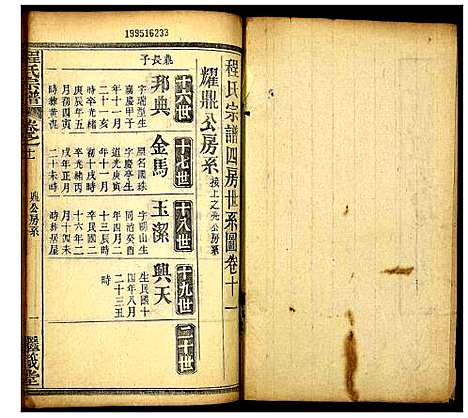 199516233
程氏宗譜四房世系圖卷十一
耀鼎公房系 按上之先公房系
鼎長子
十六世
邦典
字瑞型生
嘉慶甲子
年十一月
二十一亥
時卒光緒
庚辰年五
月初四亥
十七世
金馬
原名國珠
字慶亭生
道光庚寅
年十一月
初十戌時
卒光緒丙
戌年正月
二十未時
十八世
玉潔
字嶺山生
同治癸酉
十三辰時
卒民國二
十六年二
月十四未
時葬居屋
十九世
興天
生民國十
四年八月
二十三丑
時
二十世
程氏宗譜
卷之十一
公房系
一